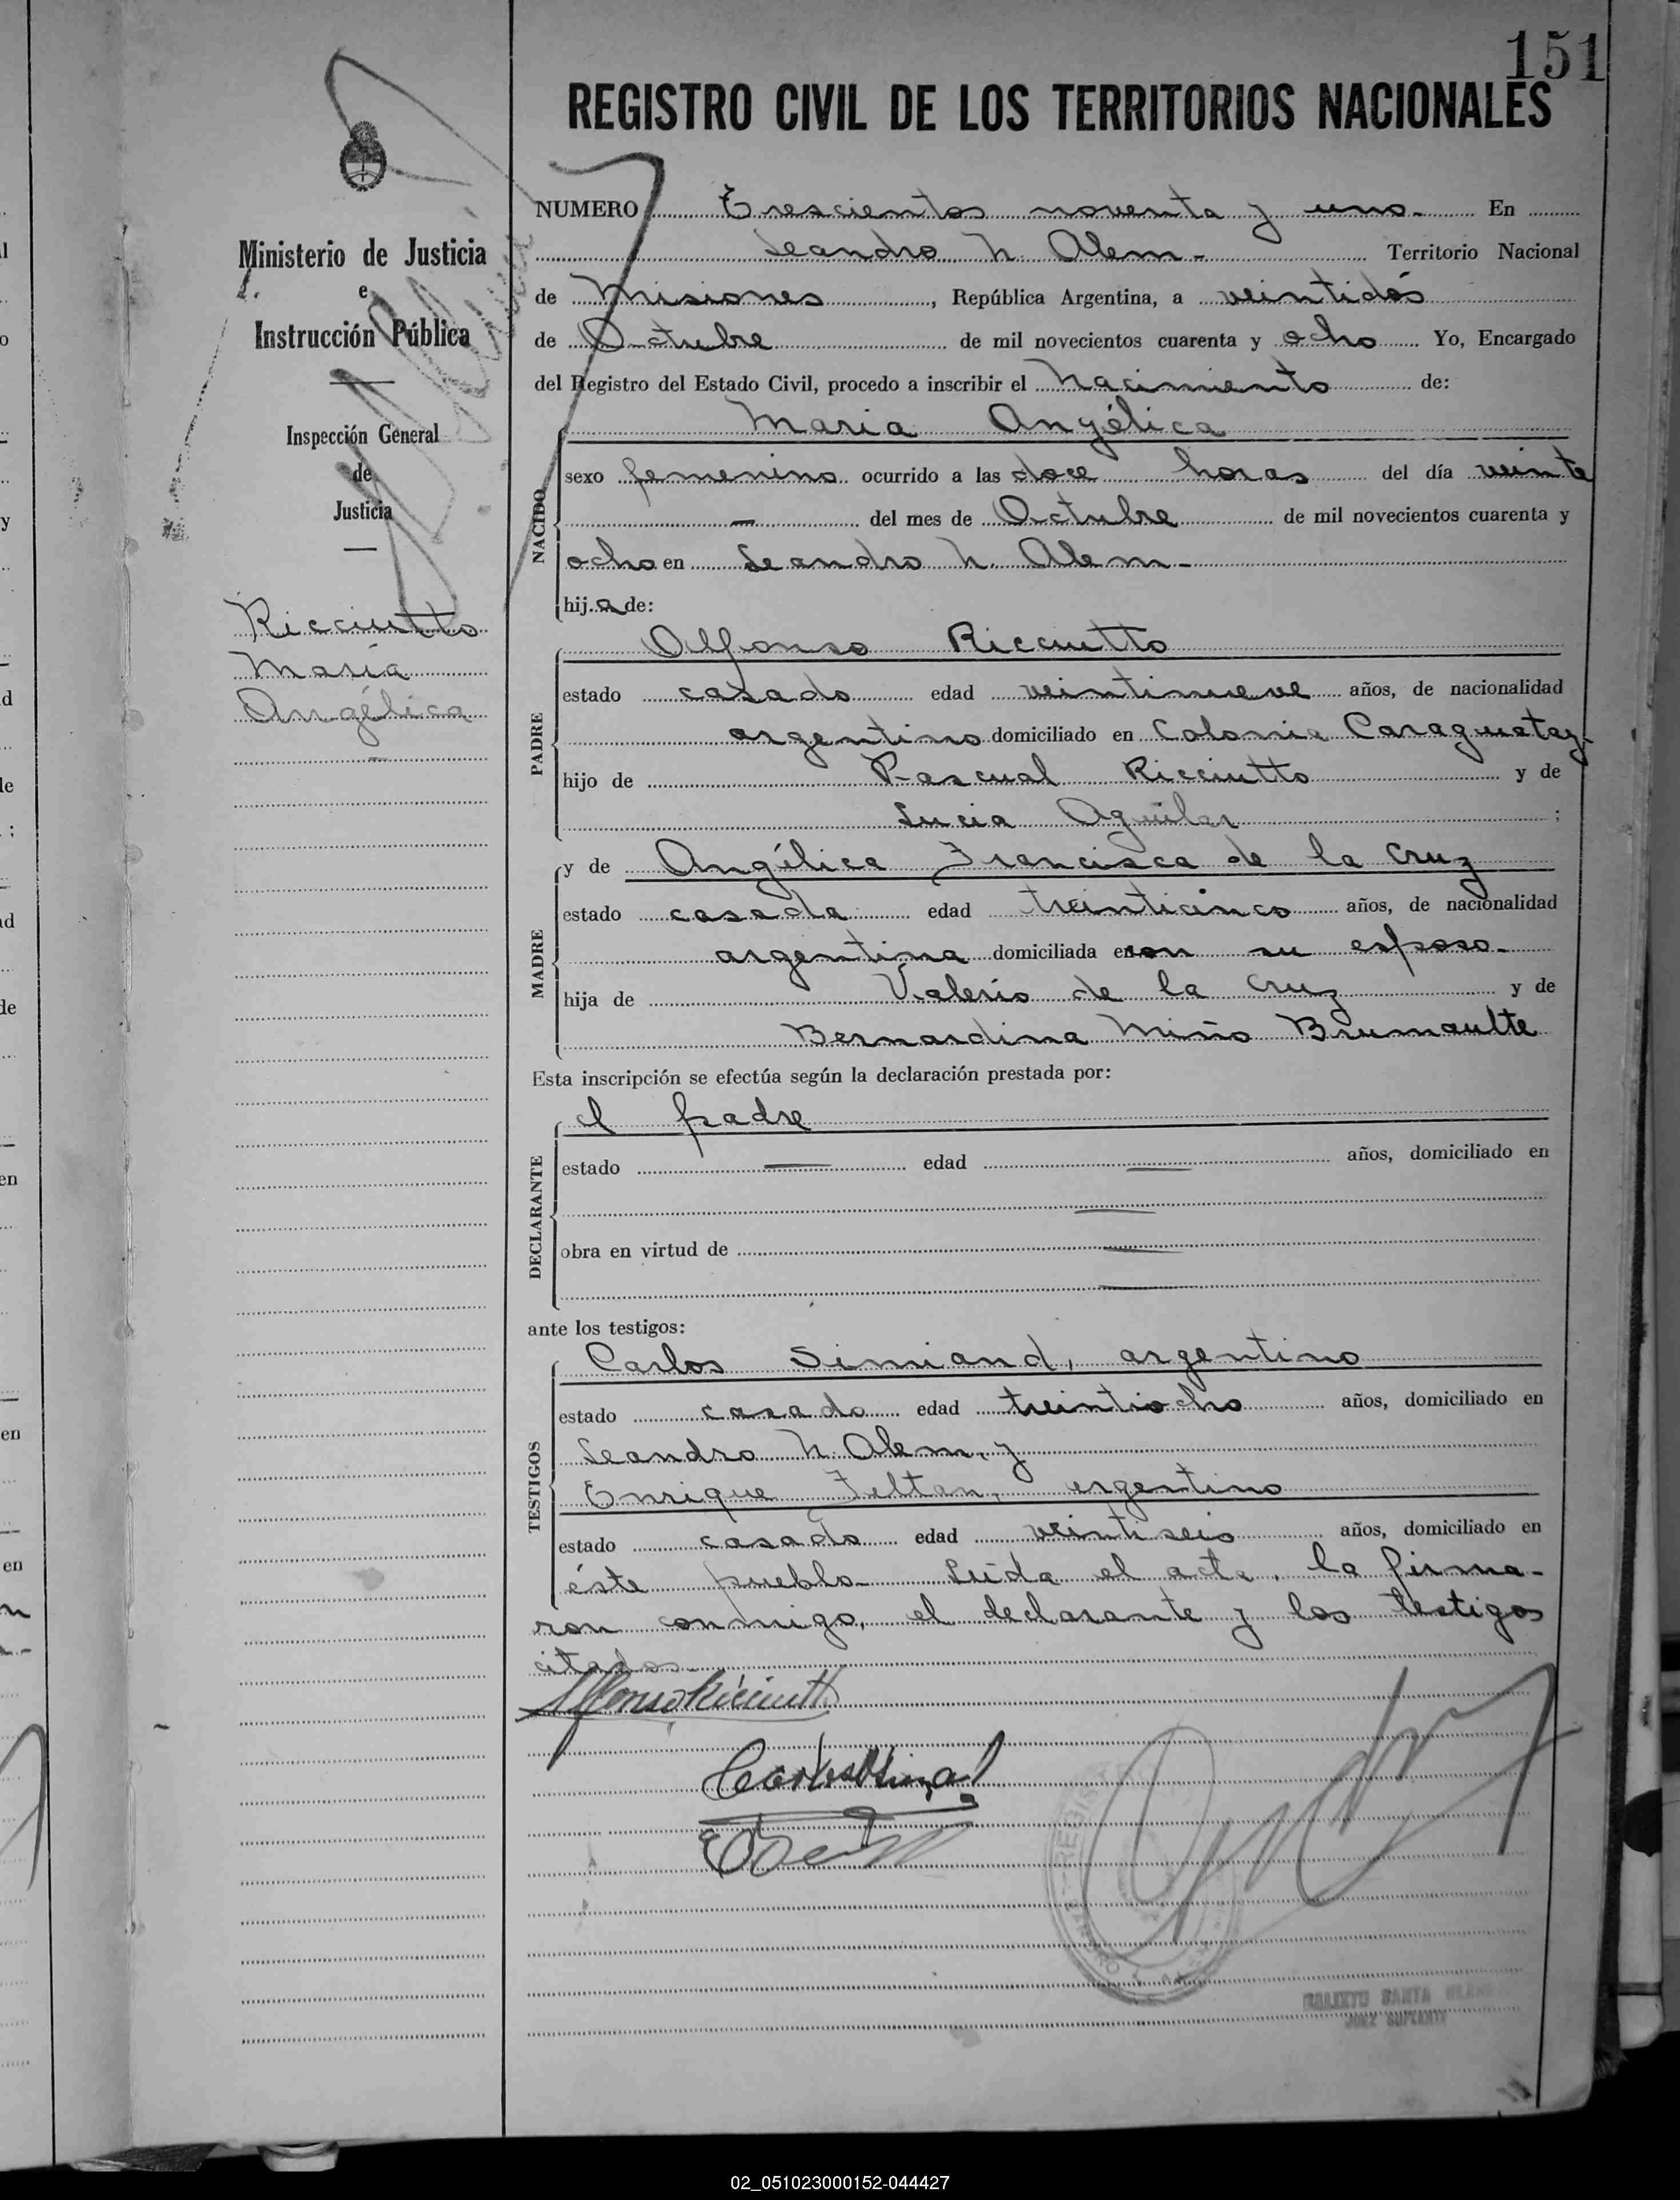 151
REGISTRO CIVIL DE LOS TERRITORIOS NACIONALES
Ministerio de Justicia
e
Instrucción Pública
Inspección General
de
Justicia
Ricciutto
María
Angélica
NUMERO Trescientos noventa y uno.- En
Leandro N. Alem.- Territorio Nacional
de Misiones, República Argentina, a veintidós
de Octubre de mil novecientos cuarenta y ocho Yo, Encargado
del Registro del Estado Civil, procedo a inscribir el Nacimiento de:
NACIDO
Maria Angélica
sexo femenino ocurrido a las doce horas del día veinte
— del mes de Octubre de mil novecientos cuarenta y
ocho en Leandro N. Alem.-
hij.a de:
PADRE
Alfonso Ricciutto
estado casado edad veintinueve años, de nacionalidad
argentino domiciliado en Colonia Caraguatay.
hijo de Pascual Ricciutto y de
Lucia Aguilar ;
MADRE
y de Angélica Francisca de la Cruz
estado casada edad treinticinco años, de nacionalidad
argentina domiciliada con su esposo.-
hija de Valerio de la Cruz y de
Bernardina Miño Brumaulte
Esta inscripción se efectúa según la declaración prestada por:
DECLARANTE
el padre
estado — edad — años, domiciliado en
—
obra en virtud de —
—
ante los testigos:
TESTIGOS
Carlos Simiand, argentino
estado casado edad treintiocho años, domiciliado en
Leandro N. Alem, y
Enrique Feltan, argentino
estado casado edad veintiseis años, domiciliado en
éste pueblo.- Leída el acta, la firma-
ron conmigo, el declarante y los testigos
citados.-
Alfonso Ricciutto
REGISTRO
SANTA
JUEZ SUPLENTE
02_051023000152-044427